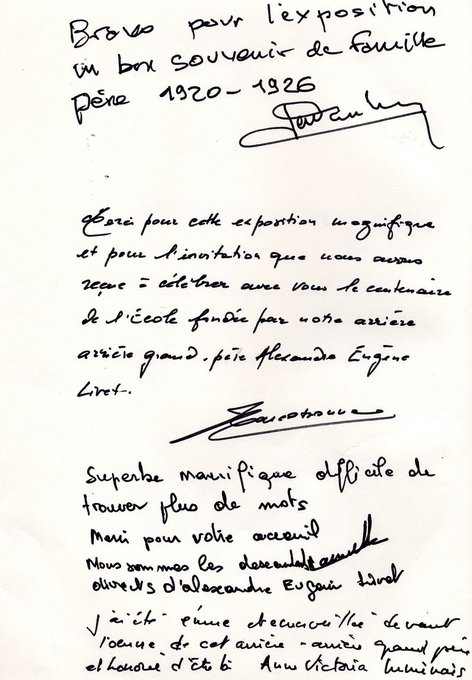 Bravo pour l'exposition
un bon souvenir de famille
père 1920-1926
Merci pour cette exposition magnifique
et pour l'invitation que nous avons
reçue à célébrer avec vous le centenaire
de l'École fondée par notre arrière
arrière grand-père Alexandre Eugène
Livet.
Superbe magnifique difficile de
trouver plus de mots
Merci pour votre acceuil
Nous sommes les descendants
directs d'alexandre Eugain Livet
j'ai été émue et emerveillée devant
l'oeuvre de cet arrière-arrière grand père
et honorée d'être là Anne Victoria Luminais